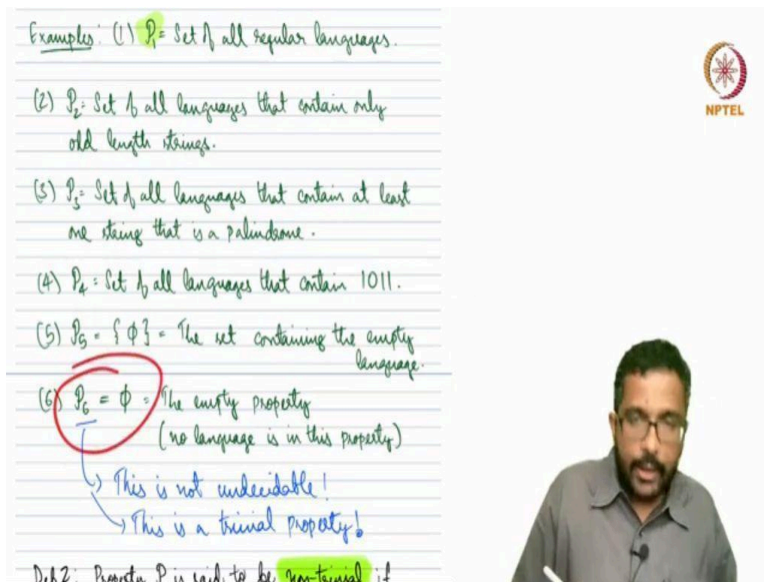 Examples: (1) P₁ = Set of all regular languages.
NPTEL
(2) P₂ = Set of all languages that contain only
odd length strings.
(3) P₃ = Set of all languages that contain at least
one string that is a palindrome.
(4) P₄ = Set of all languages that contain 1011.
(5) P₅ = {ϕ} = The set containing the empty
language.
(6) P₆ = ϕ = The empty property
(no language is in this property)
→ This is not undecidable!
→ This is a trivial property!
Def 2: Property P is said to be non-trivial if